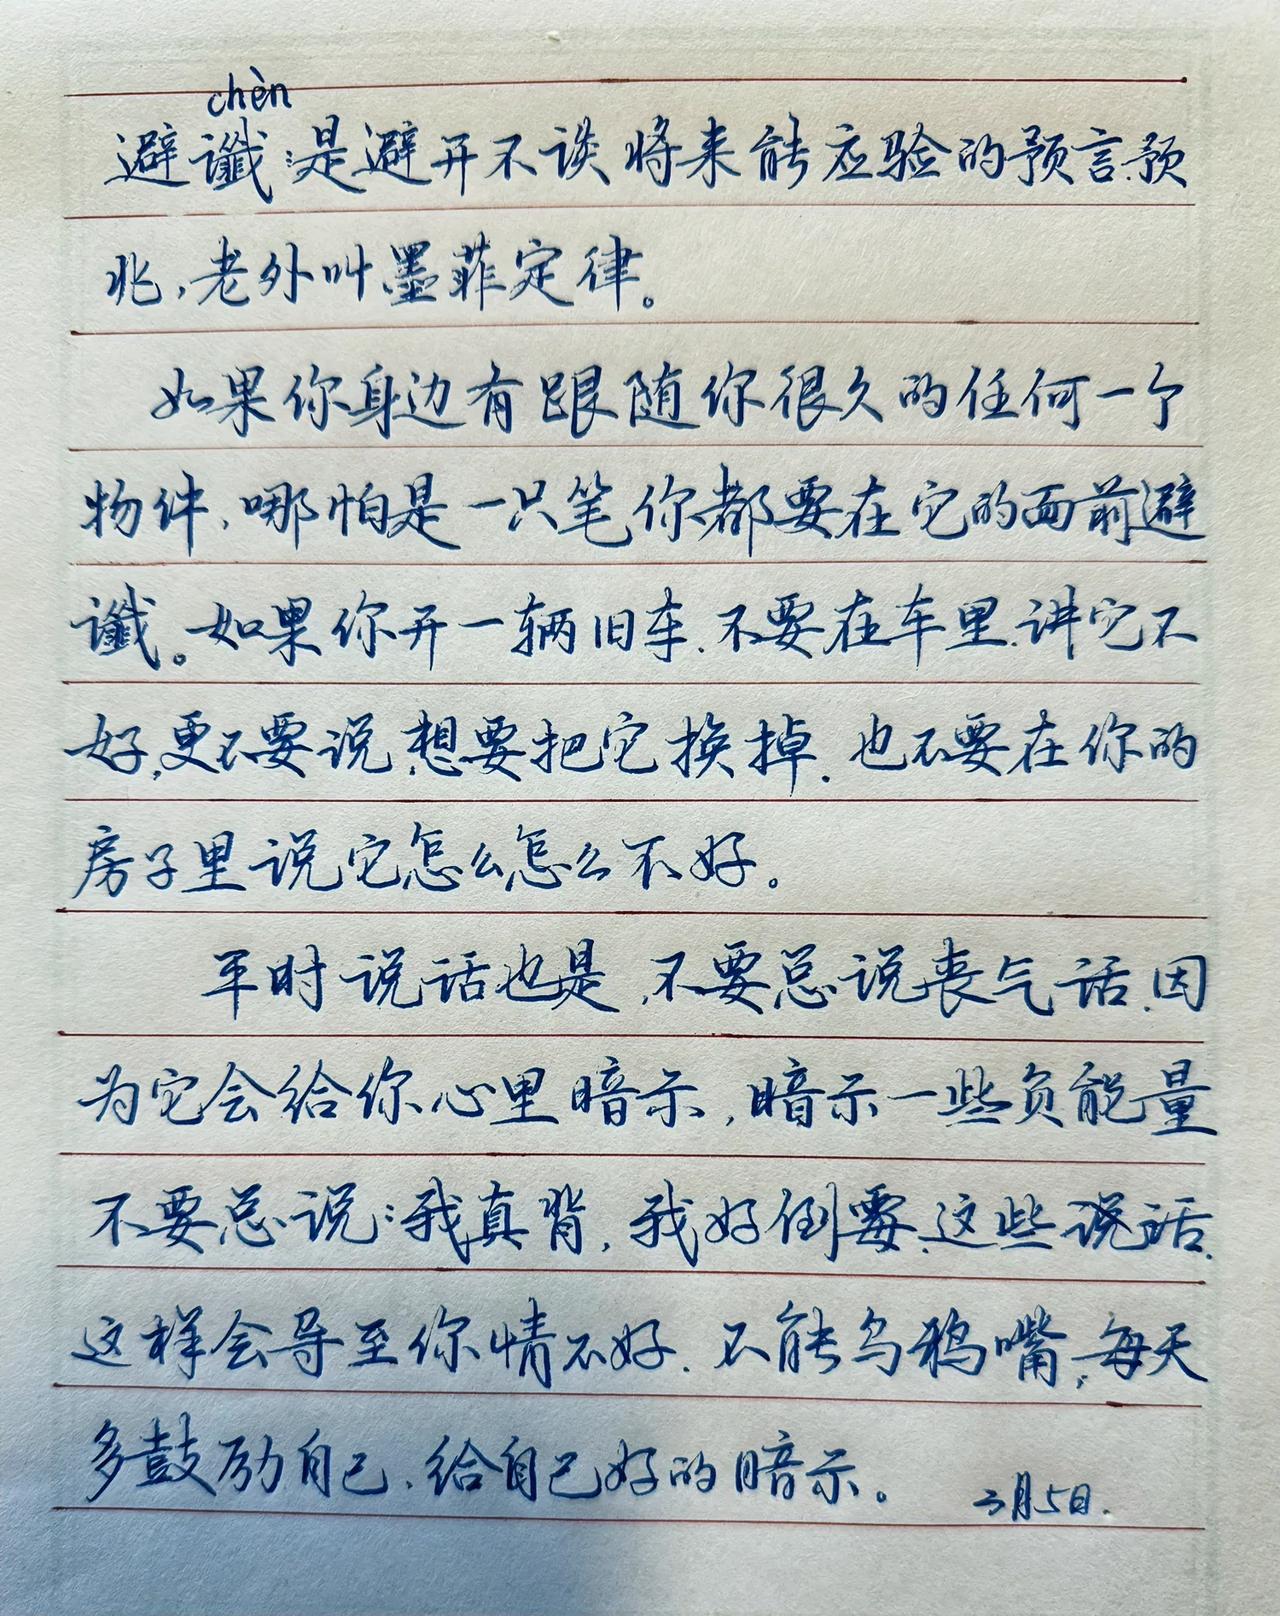 chèn
避谶:是避开不谈将来能应验的预言.预
兆,老外叫墨菲定律。
如果你身边有跟随你很久的任何一个
物件,哪怕是一只笔你都要在它的面前避
谶。如果你开一辆旧车.不要在车里.讲它不
好,更不要说,想要把它换掉.也不要在你的
房子里说它怎么怎么不好。
平时说话也是,不要总说丧气话.因
为它会给你心里暗示,暗示一些负能量
不要总说:我真背,我好倒霉.这些说话.
这样会导至你情不好.不能乌鸦嘴,每天
多鼓励自己.给自己好的暗示。
三月5日.